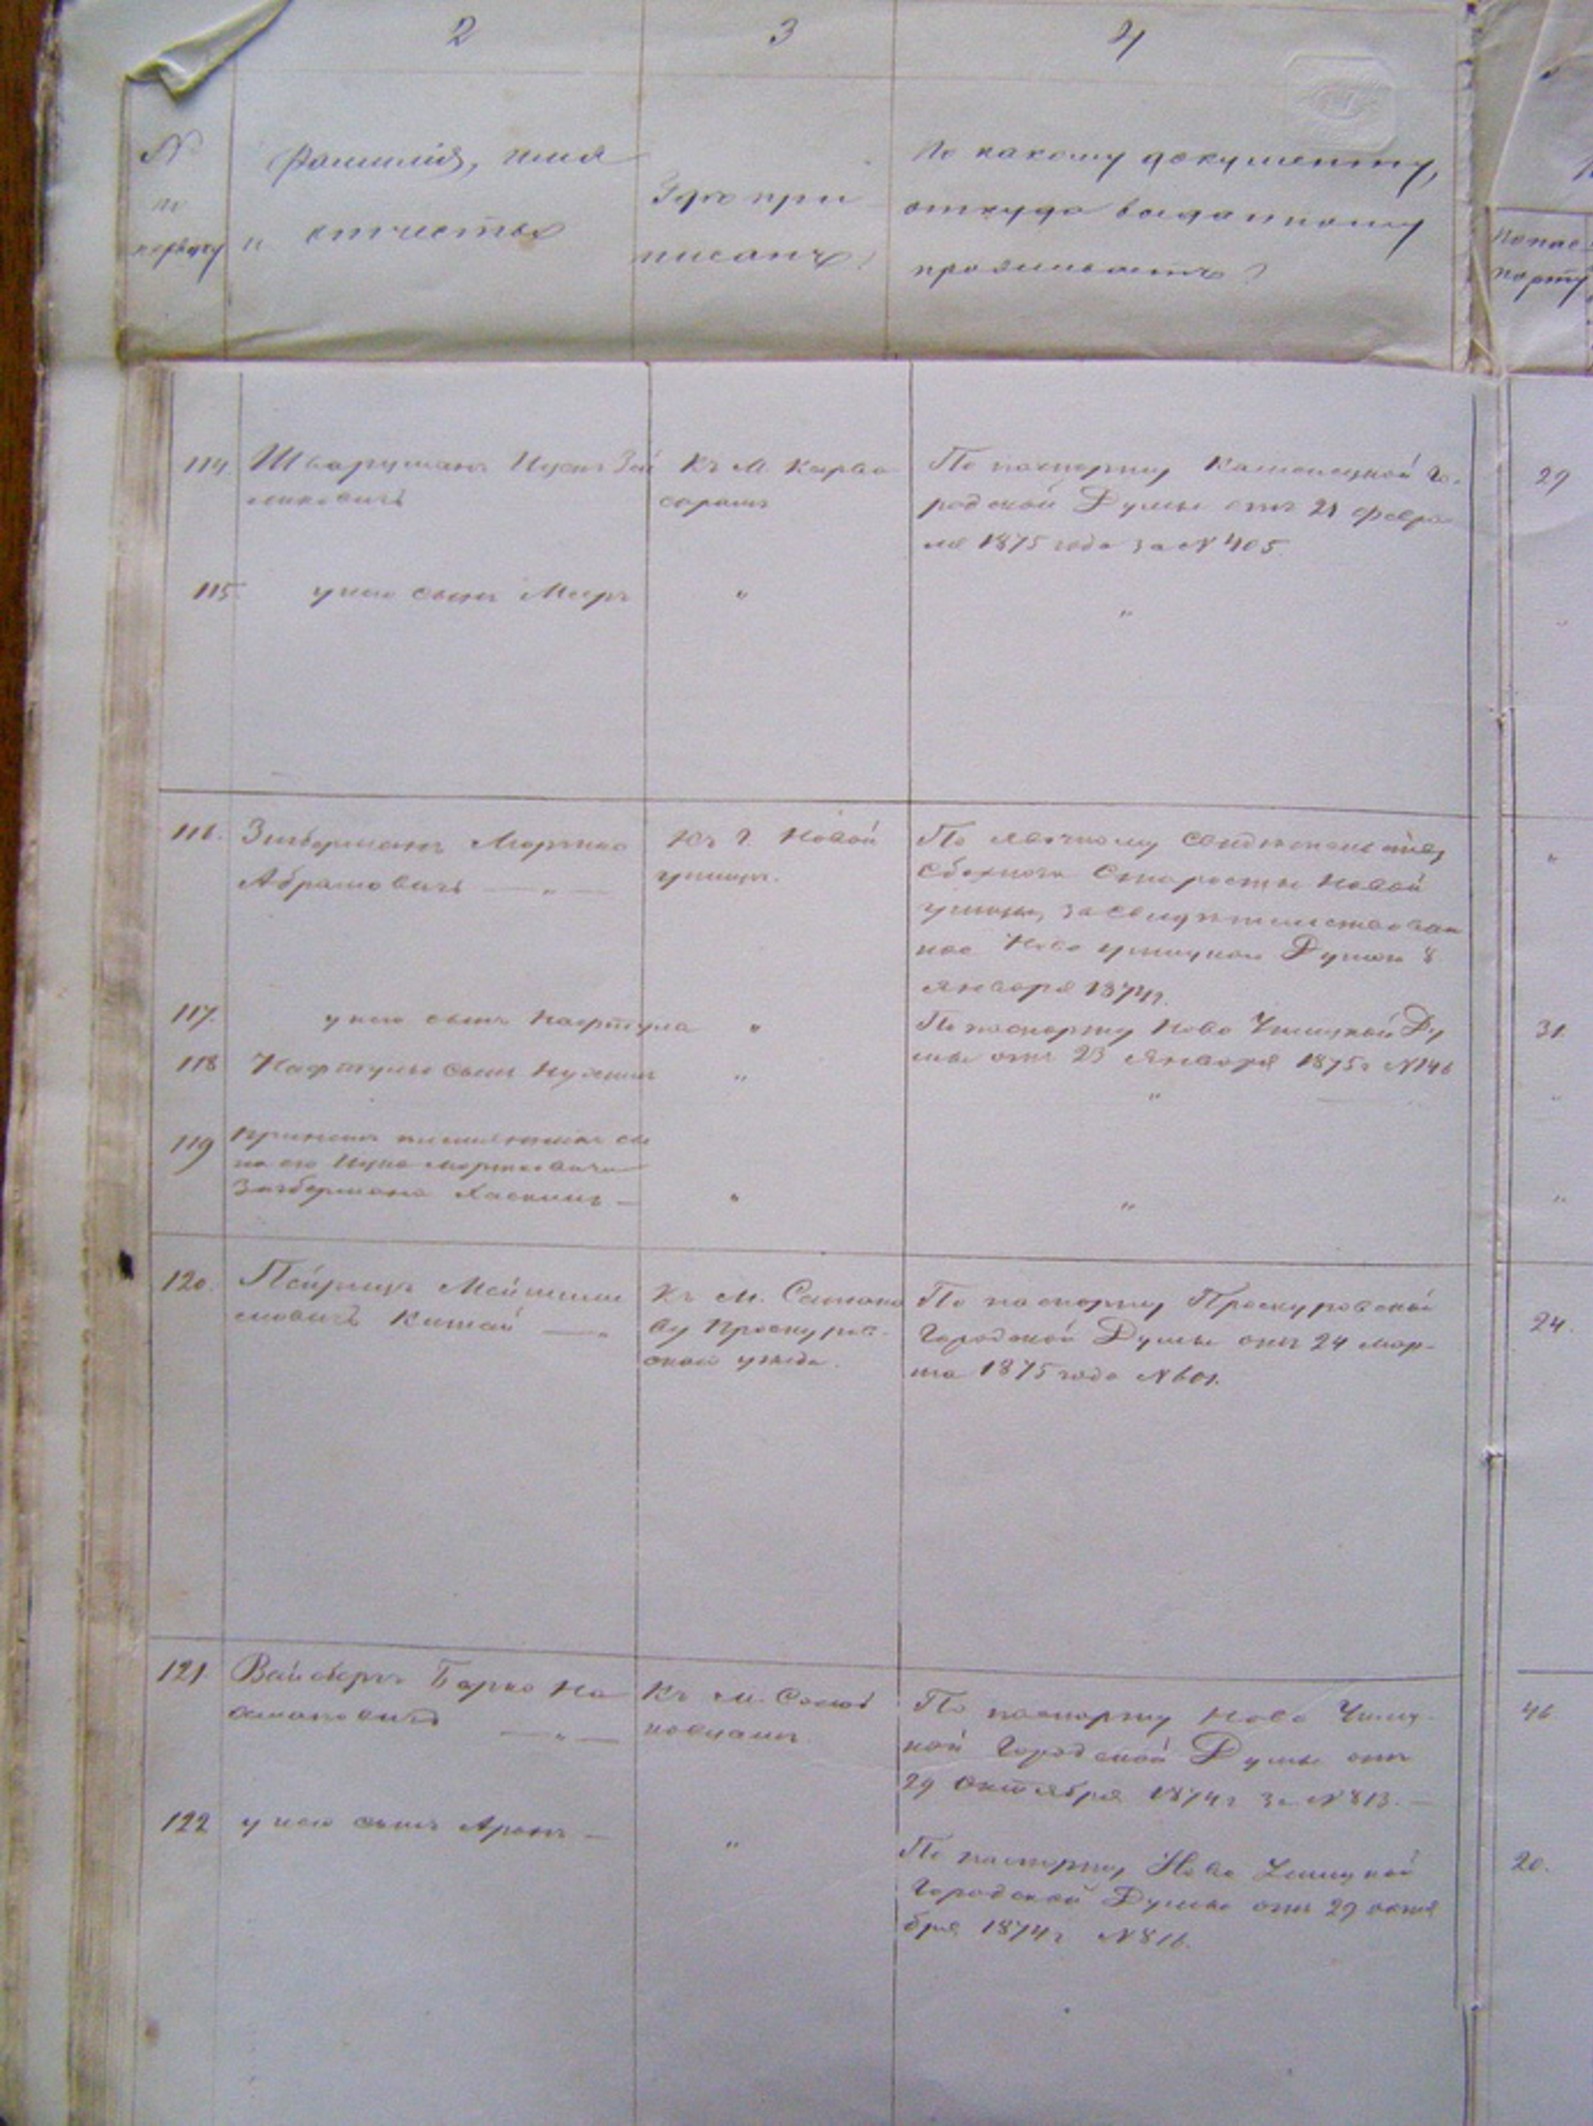 2 3 4
N
по
порядку
Фамилія, имя
и отчество
Гдѣ при
писанъ?
По какому документу,
откуда выданному
проживаетъ?
По пас
порту
114. Шварцманъ Ицек Зей
ликовичъ
Къ М. Карва
сарамъ
По паспорту Каменецкой Го-
родской Думы отъ 21 Февра
ля 1875 года за N 405
29
115 у него сынъ Мееръ " "
116. Зильберманъ Мортко
Абрамовичъ — " —
Къ Г. Новой
Ушицѣ.
По явочному свидѣтельству
Сборнаго Старосты Новой
Ушицы, засвидѣтельствован
ное Ново Ушицкой Думой 8
Января 1874г.
117. у него сынъ Нафтула "
По паспорту Ново Ушицкой Ду
мы отъ 23 Января 1875г N146
31.
118 Нафтулы сынъ "
"
119
на его Мортковича
Зильбермана — " "
120. Пейрицъ
Китай — "
Къ М. Сатано
ву Проскуров-
скаго уѣзда.
По паспорту Проскуровской
Городской Думы отъ 24 мар-
та 1875 года N 601.
24.
121. Вайсбергъ Берко На
хмановичъ — " —
Къ М.
ковцамъ
По паспорту Ново Ушиц-
кой Городской Думы отъ
29 Октября 1874г за N 813. —
46
122 у него сынъ Аронъ — "
По паспорту Ново Ушицкой
Городской Думы отъ 29 октя
бря 1874г N 816.
20.